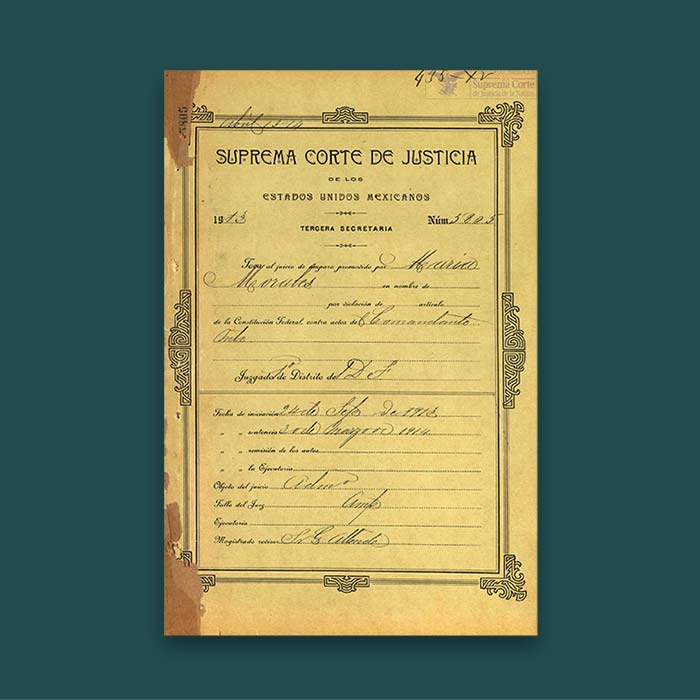 495-XV
Suprema Corte
de Justicia de la Nación
5805
Abril 13-14
SUPREMA CORTE DE JUSTICIA
DE LOS
ESTADOS UNIDOS MEXICANOS
1913 Núm. 5805
TERCERA SECRETARIA
Toca al juicio de amparo promovido por Maria
Morales en nombre de
por violación de artículo
de la Constitución Federal, contra actos del Comandante
Juzgado 1o de Distrito del D F
Fecha de iniciación 24 de Sep de 1913
„ „ sentencia 30 de marzo de 1914
„ „ remisión de los autos
„ „ la Ejecutoria
Objeto del juicio Admo
Fallo del Juez Amp
Ejecutoria
Magistrado revisor Sr G. Allende